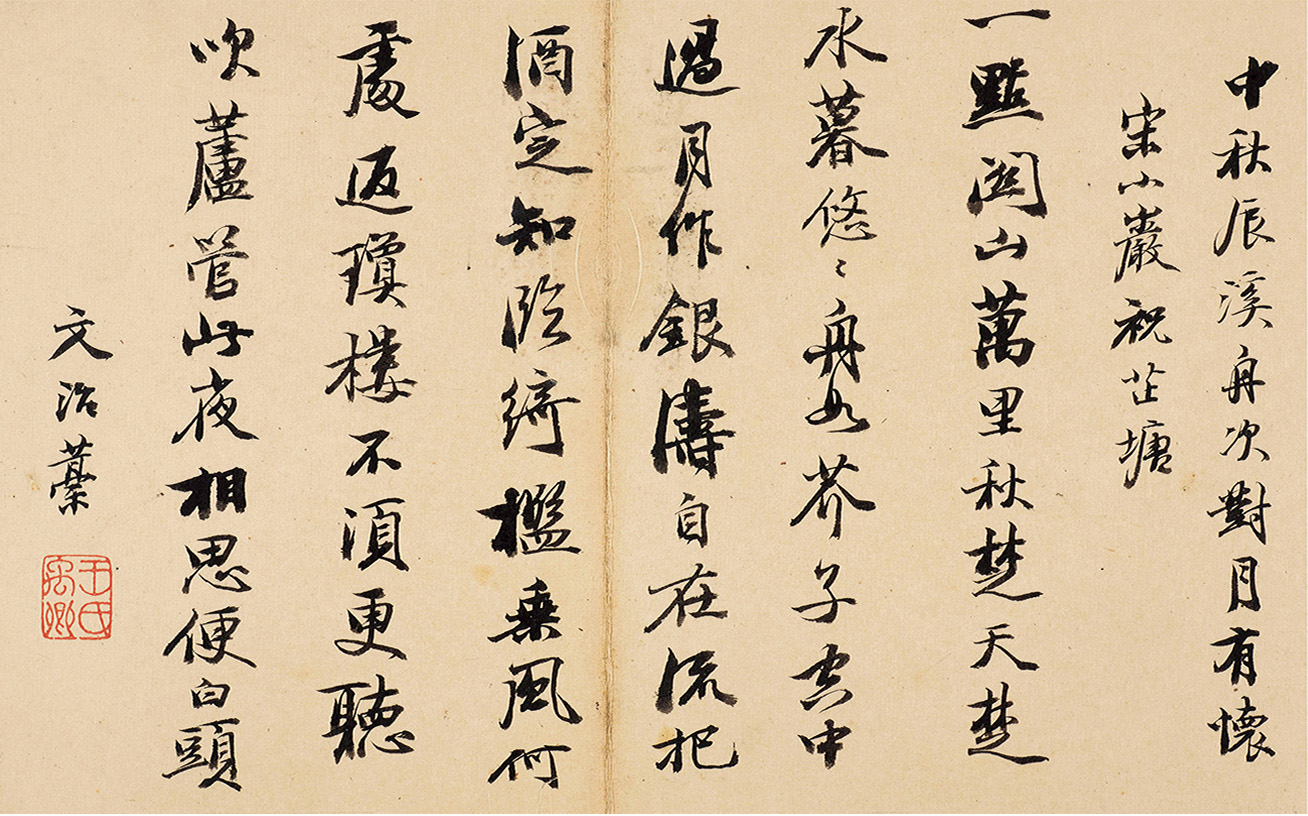 中秋辰溪舟次對月有懷
宋小巖祝芷塘
一點關山萬里秋楚天楚
水暮悠〻舟如芥子空中
過月作銀濤自在流把
酒定知臨綺檻乘風何
處返瓊樓不須更聽
吹蘆管此夜相思便白頭
文治藳
王氏禹卿